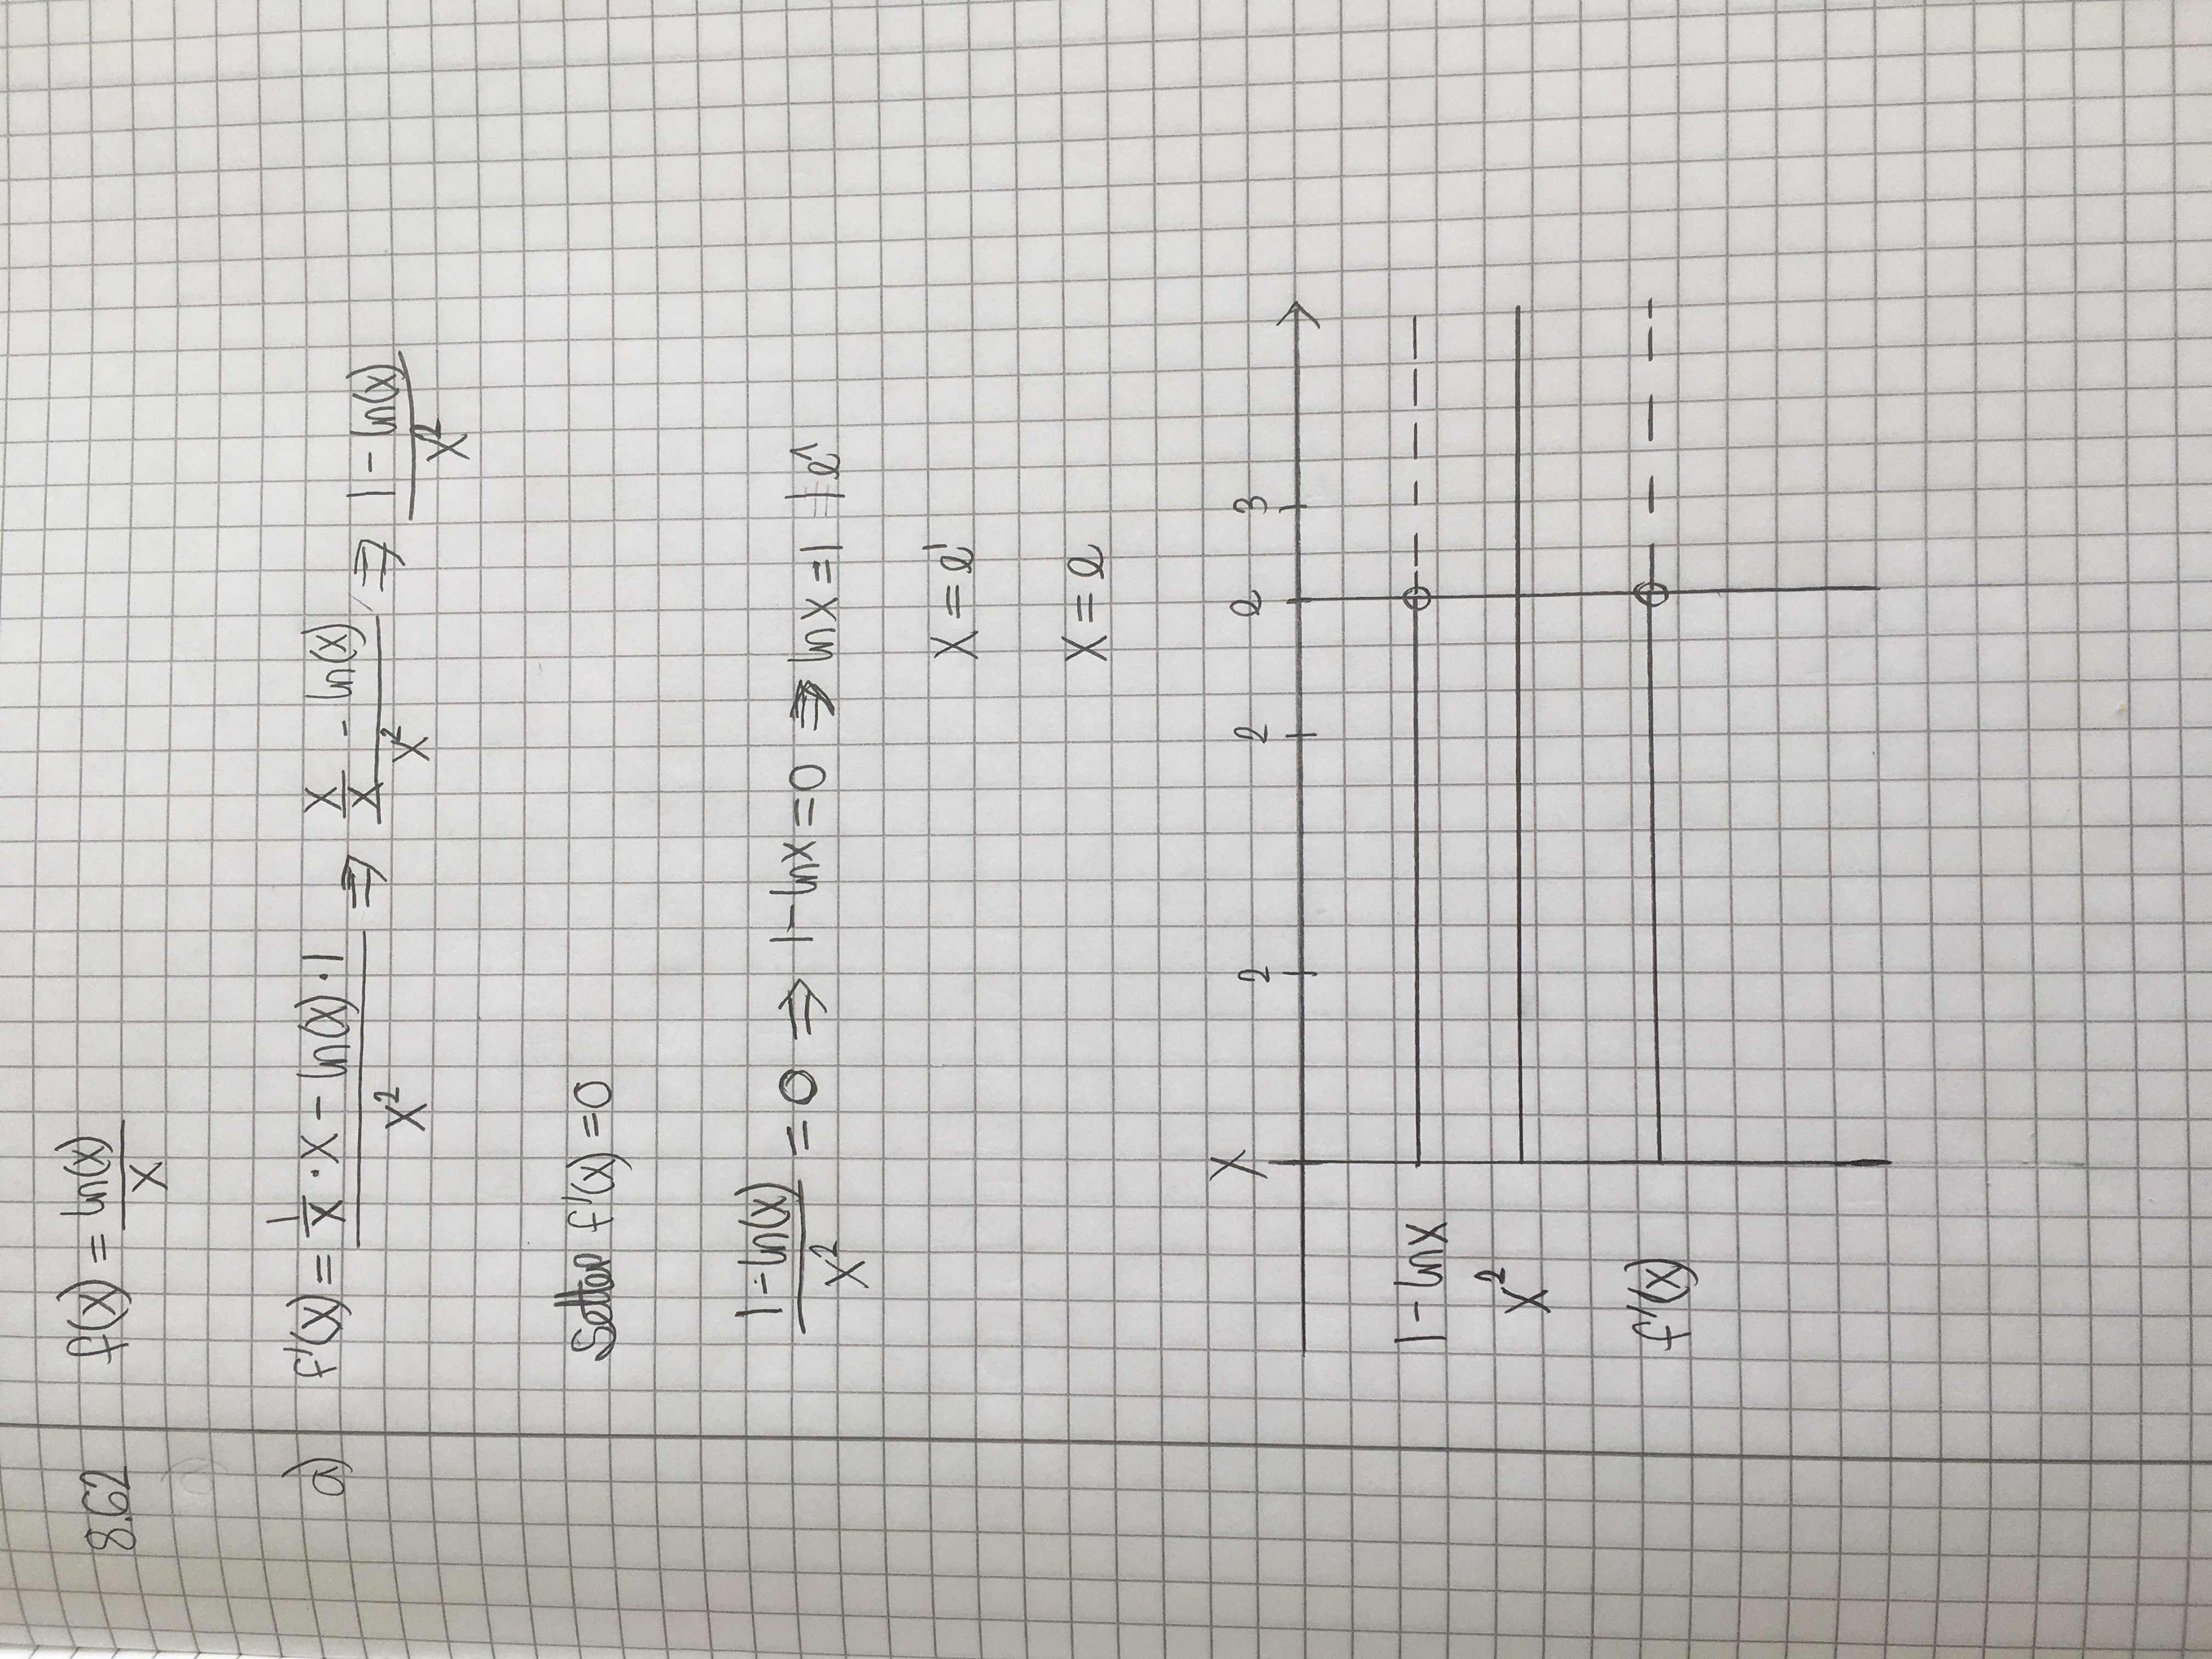 8.62 f(x) = ln(x)/x
a) f'(x) = (1/x · x - ln(x) · 1)/x² ⇒ (x/x - ln(x))/x² ⇒ (1 - ln(x))/x²
Setter f'(x) = 0
(1 - ln(x))/x² = 0 ⇒ 1 - lnx = 0 ⇒ lnx = 1 | e^
x = e¹
x = e
X 2 2 e 3
1 - lnx
x²
f'(x)